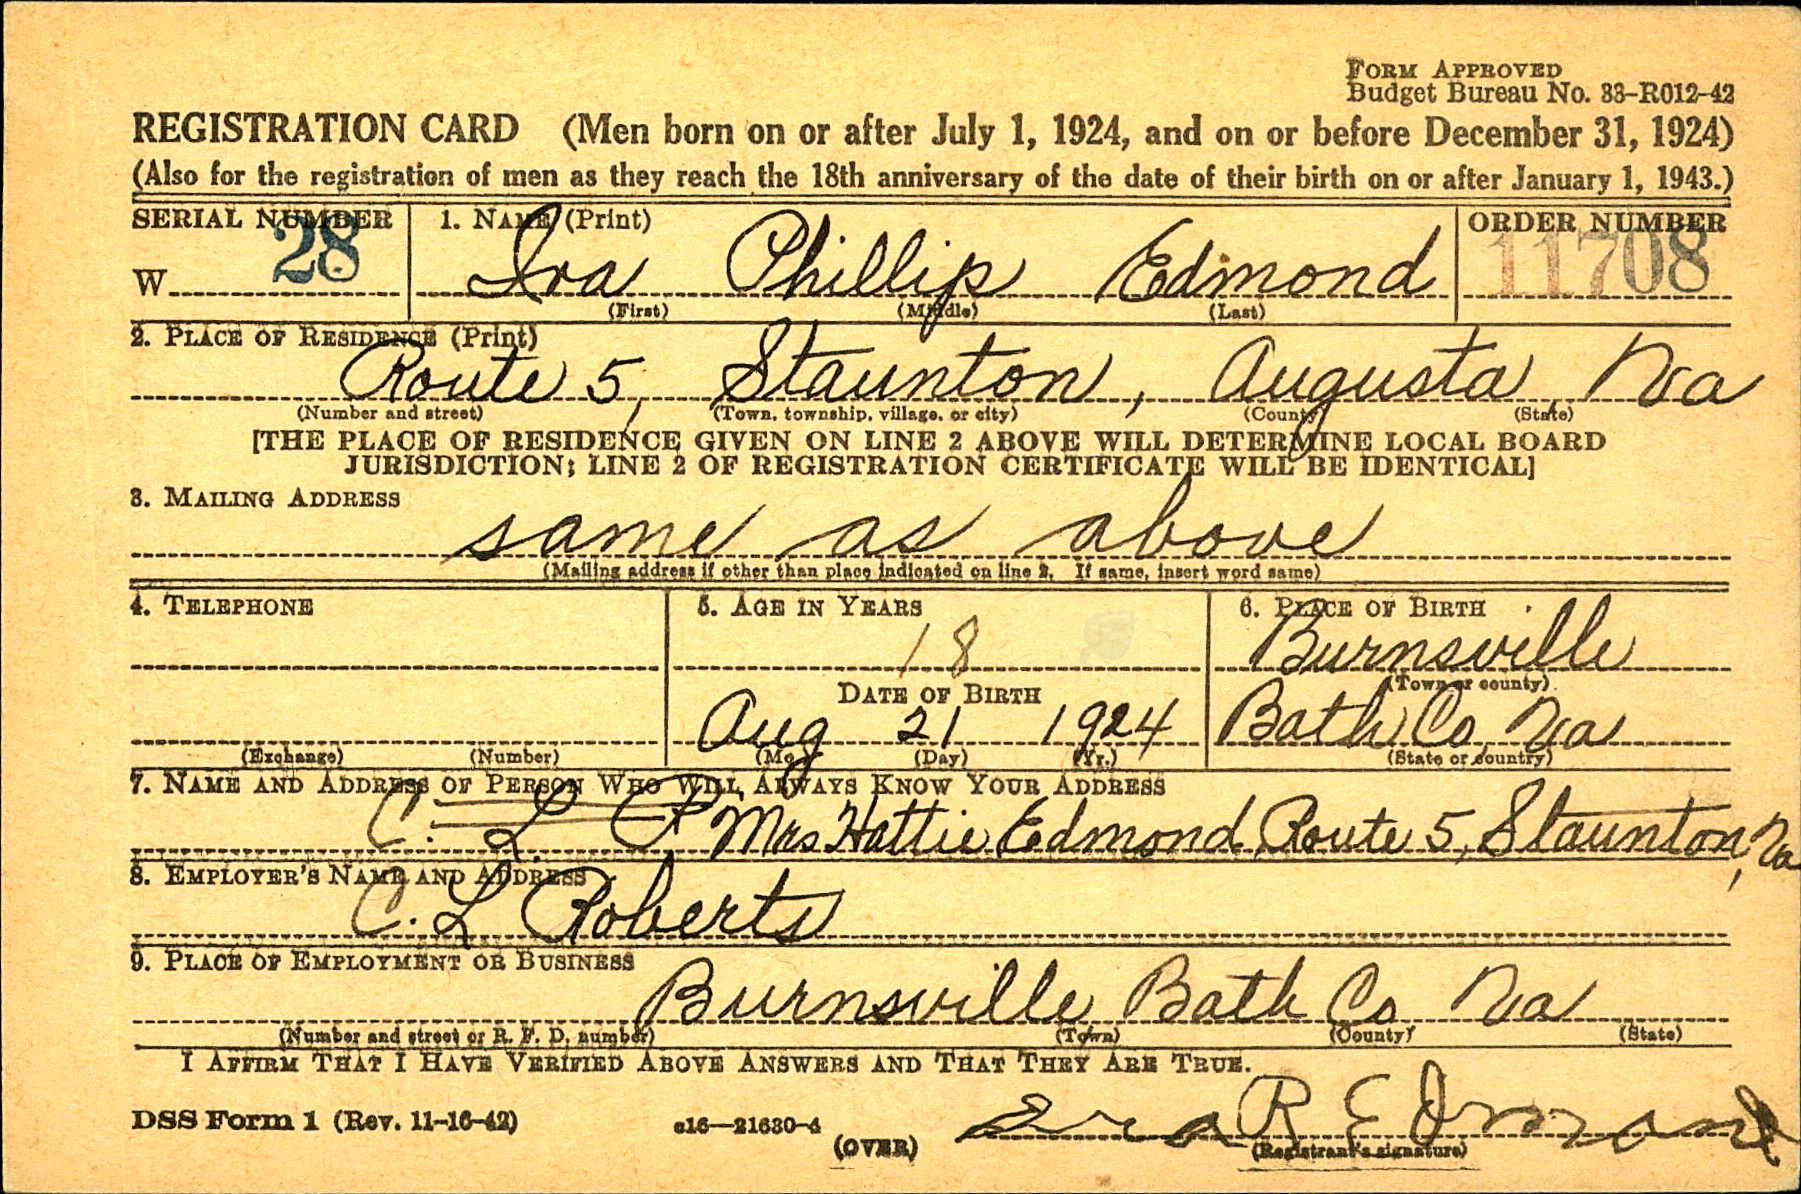 FORM APPROVED
Budget Bureau No. 33-R012-42
REGISTRATION CARD (Men born on or after July 1, 1924, and on or before December 31, 1924)
(Also for the registration of men as they reach the 18th anniversary of the date of their birth on or after January 1, 1943.)
SERIAL NUMBER 1. NAME (Print) ORDER NUMBER
W 28 Ira Phillip Edmond 11708
(First) (Middle) (Last)
2. PLACE OF RESIDENCE (Print)
Route 5, Staunton, Augusta, Va
(Number and street) (Town, township, village, or city) (County) (State)
[THE PLACE OF RESIDENCE GIVEN ON LINE 2 ABOVE WILL DETERMINE LOCAL BOARD
JURISDICTION; LINE 2 OF REGISTRATION CERTIFICATE WILL BE IDENTICAL]
3. MAILING ADDRESS
same as above
(Mailing address if other than place indicated on line 2. If same, insert word same)
4. TELEPHONE 5. AGE IN YEARS 6. PLACE OF BIRTH
18 Burnsville
DATE OF BIRTH (Town or county)
Aug 21 1924 Bath Co, Va
(Exchange) (Number) (Mo.) (Day) (Yr.) (State or country)
7. NAME AND ADDRESS OF PERSON WHO WILL ALWAYS KNOW YOUR ADDRESS
C. L. R Mrs Hattie Edmond, Route 5, Staunton, Va
8. EMPLOYER'S NAME AND ADDRESS
C. L Roberts
9. PLACE OF EMPLOYMENT OR BUSINESS
Burnsville Bath Co Va
(Number and street or R. F. D. number) (Town) (County) (State)
I AFFIRM THAT I HAVE VERIFIED ABOVE ANSWERS AND THAT THEY ARE TRUE.
DSS Form 1 (Rev. 11-16-42) c16—21630-4 Ira R Edmond
(OVER) (Registrant's signature)